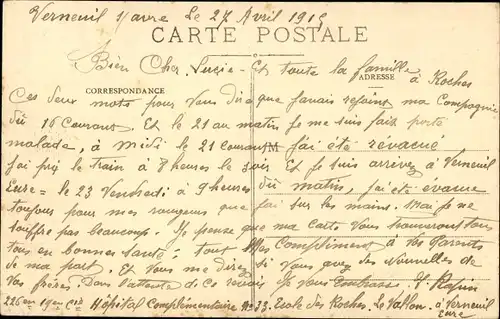 Verneuil s/avre Le 27 Avril 1915
CARTE POSTALE
Bien Cher Lucie - Et toute la famille
CORRESPONDANCE
ADRESSE
à Roches
Ces deux mots pour vous dire que j'avais rejoint ma Compagnie
du 16 courant. Et le 21 au matin je me suis fait porté
malade, à midi le 21 courant j'ai été évacué
j'ai pri le train à 8 heures le soir Et je suis arrivez à Verneuil
Eure = le 23 Vendredi à 9 heures du matin, j'ai été évacue
toujour pour mes rougeurs que j'ai sur les mains. Mai je ne
souffre pas beaucoup. Je pense que ma carte vous trouveront tous
tous en bonne santé. tout Mes Compliment à vos Parents
de ma part. Et vous me direz si vous avez des Nouvelles de
vos frères. Dans l'attente de ce revoir je vous embrasse
225 em 19 em Cie Hôpital Complémentaire No 33. Ecole des Roches Le Vallon. à Verneuil
Eure